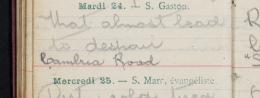 Mardi 24. — S. Gaston.
That almost lead
to despair
Cambria Road
Mercredi 25. — S. Marc, évangéliste